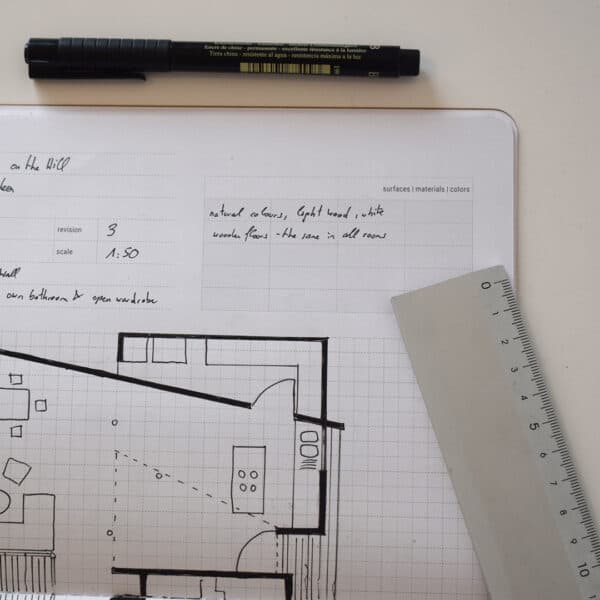 Encre de chine - permanente - excellente résistance à la lumière
Tinta china - resistente al agua - resistencia máxima a la luz
B
on the Hill
surfaces | materials | colors
natural colours, light wood, white
revision 3
wooden floors - the same in all rooms
scale 1:50
own bathroom & open wardrobe
0
1
2
3
4
5
6
7
8
9
10